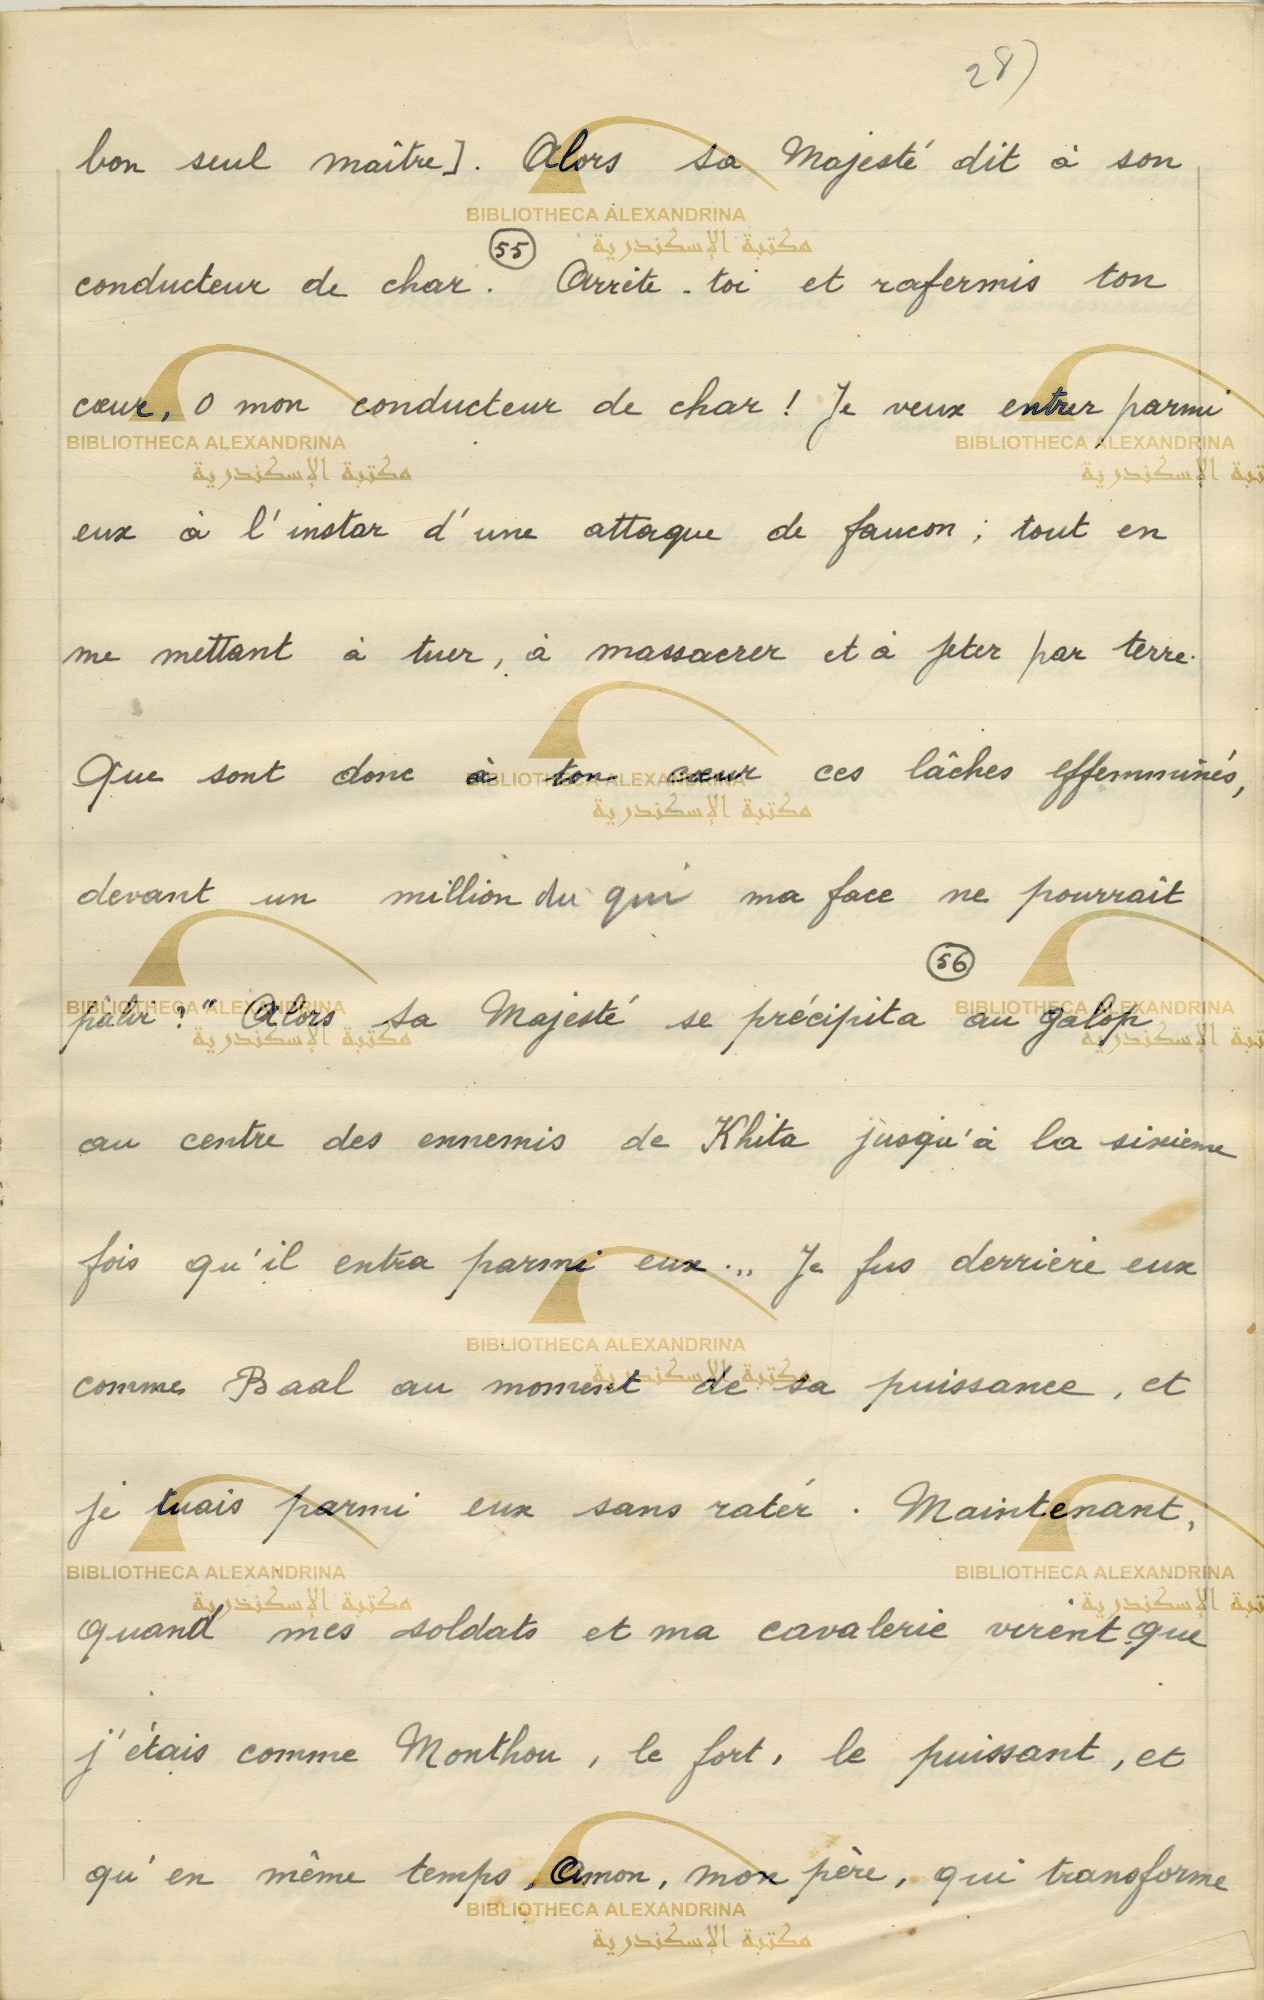 28)
bon seul maître]. Alors sa Majesté dit à son
(55)
conducteur de char. Arrête-toi et rafermis ton
cœur, O mon conducteur de char ! Je veux entrer parmi
eux à l'instar d'une attaque de faucon ; tout en
me mettant à tuer, à massacrer et à jeter par terre.
Que sont donc à ton cœur ces lâches effemminés,
devant un million du qui ma face ne pourrait
(56)
pâlir ?" Alors sa Majesté se précipita au galop
au centre des ennemis de Khita jusqu'à la sixieme
fois qu'il entra parmi eux... Je fus derriere eux
comme Baal au moment de sa puissance, et
je tuais parmi eux sans ratér. Maintenant,
quand mes soldats et ma cavalerie virent que
j'étais comme Monthou, le fort, le puissant, et
qu'en même temps, Amon, mon père, qui transforme
BIBLIOTHECA ALEXANDRINA
مكتبة الإسكندرية